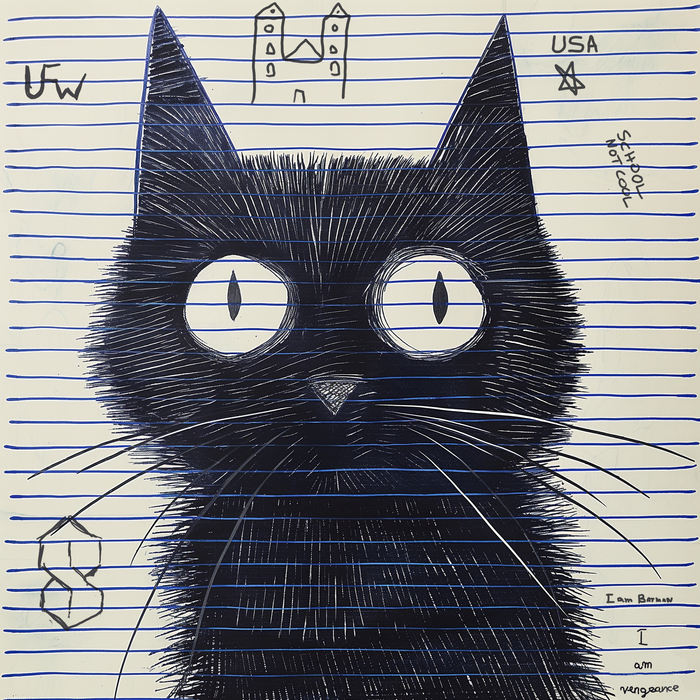 UFW
USA
SCHOOL
NOT COOL
I am BATMAN
I
am
vengeance